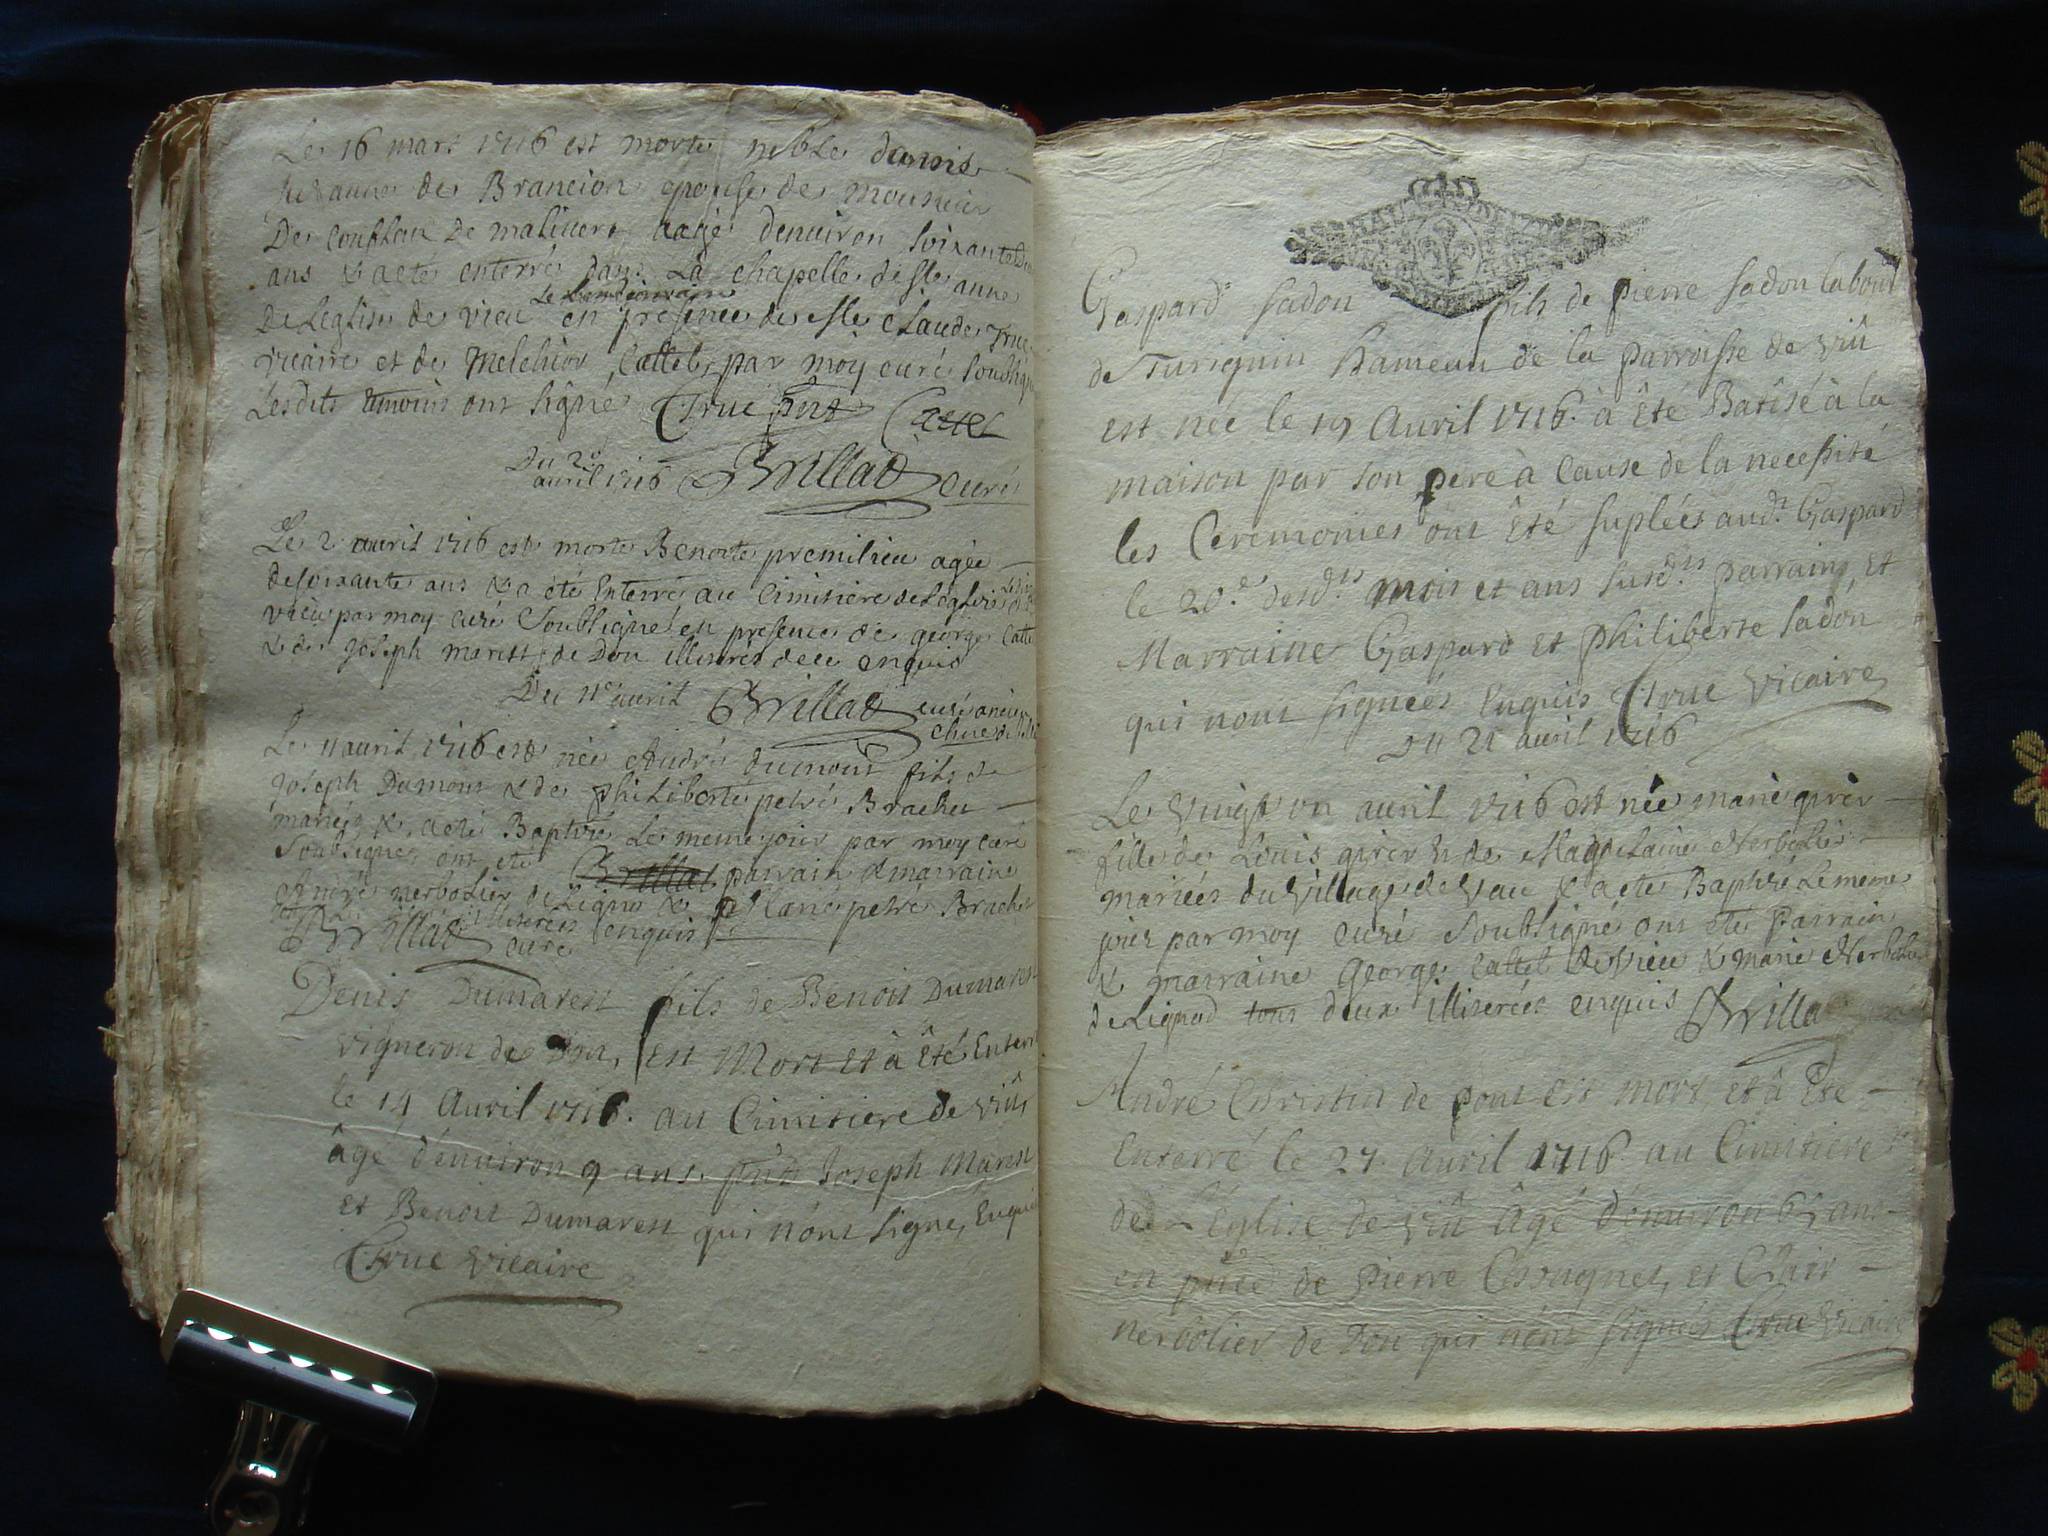 Le 16 mars 1716 est morte noble
de Brancion epouse de
De agé denviron soixante
ans & a eté enterré dans La chapelle de Ste anne
De Leglise de vieu Le Lendemain en presence de Claude Truc
vicaire et de Melchior Cattel, par moy curé soubsigné
Lesdits temoins ont signé Truc pnt Cattel
Du 2e
avril 1716 Brillat curé
Le 2 avril 1716 est morte Benoite premilieu agée
de soixante ans & a été Enterré au Cimitiere de Leglise de
vieu par moy curé Soubsigné en presence de george Catte
& de Joseph marest de Don illiterés de ce enquis
Du 11e avril Brillat curé
Le 11 avril 1716 est née André dumont fils de
Joseph Dumont & de philiberte petré Brachet
mariés & a eté Baptisé Le meme jour par moy curé
Soubsigné ont eté Brillat parrain & marraine
André nerbolier de Ligno & petré Brachet
illiterés enquis
Brillat curé
Denis Dumarest fils de Benoit Dumarest
vigneron de Don, Est Mort et à Êté Enterré
le 14 Avril 1716. au Cimitiere de viû,
âgé d'enuiron 9 ans. pnts Joseph Marest
et Benoit Dumarest qui n'ont signe, Enquis
Truc vicaire
Gaspard sadon fils de pierre sadon labour
de Turignin Hameau de la parroisse de viû
est née le 19 Avril 1716. à Êté Batisé à la
maison par son pere à Cause de la necessité
les Ceremonies ont Êté suplées aud.t Gaspard
le 20.e desd.ts mois et ans susd.ts parrain, et
Marraine Gaspard et philiberte sadon
qui n'ont signeés Enquis Truc vicaire
Du 21 avril 1716
Le vingt un avril 1716 est née marie girer
fille de Louis girer & de Magdelaine Nerbolier
mariées du village de vau & a ete Baptisé Le meme
jour par moy curé Soubsigné ont eté parrain
& marraine George Cattel de vieu & marie Nerbolier
de Lignod tous deux illiterés enquis Brilla
André Christin de pont Est mort et à Êté
Enterré le 27. avril 1716 au Cimitiere
de L'Église de viû âgé d'enuiron 65 ans
en pnce de pierre et Clair
nerbolier de Don qui n'ont signés Truc vicaire